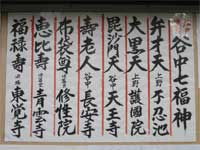 谷中七福神
弁才天 上野 不忍池
大黒天 上野 護國院
毘沙門天 谷中 天王寺
壽老人 谷中 長安寺
布袋尊 日暮里 修性院
恵比壽 日暮里 青雲寺
福禄壽 田端 東覚寺